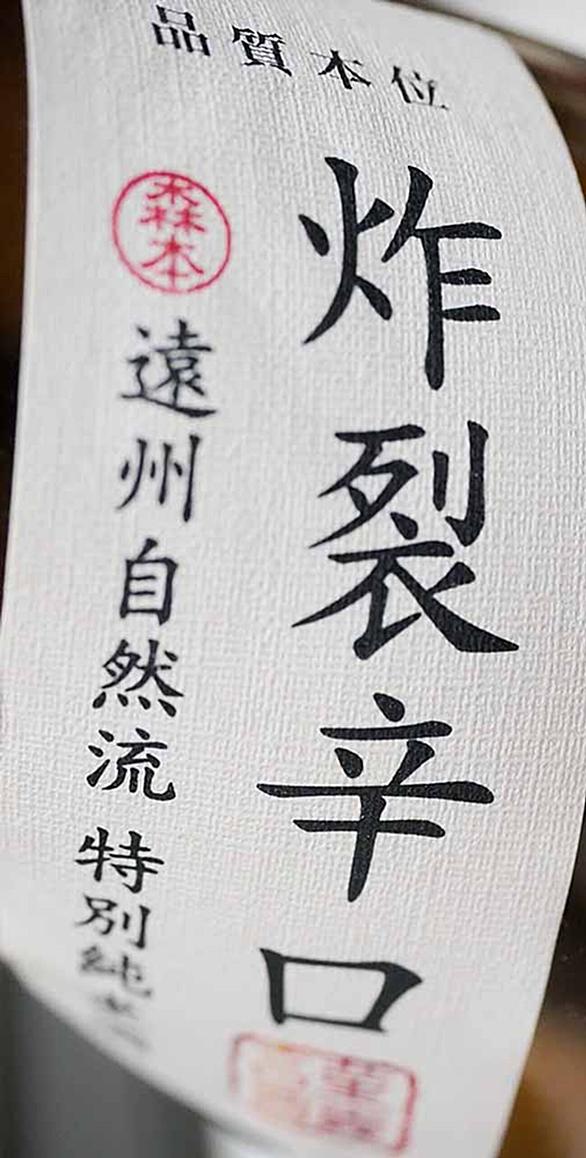 品質本位
炸裂辛口
森本
遠州自然流 特別純米